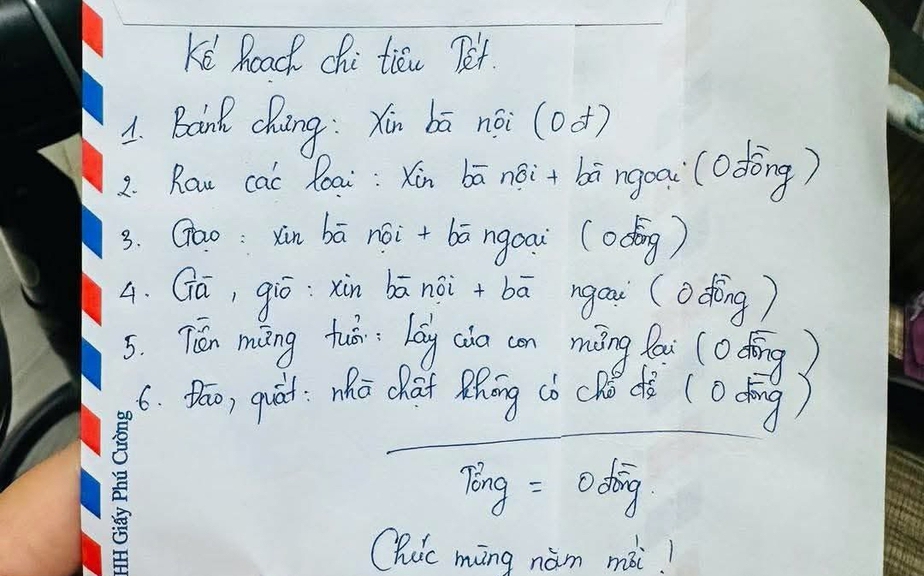 Kế hoạch chi tiêu Tết.
1. Bánh chưng: Xin bà nội (0 đ)
2. Rau các loại: Xin bà nội + bà ngoại (0 đồng)
3. Gạo: xin bà nội + bà ngoại (0 đồng)
4. Gà, giò: xin bà nội + bà ngoại (0 đồng)
5. Tiền mừng tuổi: Lấy của con mừng lại (0 đồng)
6. Đào, quất: nhà chật không có chỗ để (0 đồng)
Tổng = 0 đồng.
Chúc mừng năm mới!
HH Giấy Phú Cường